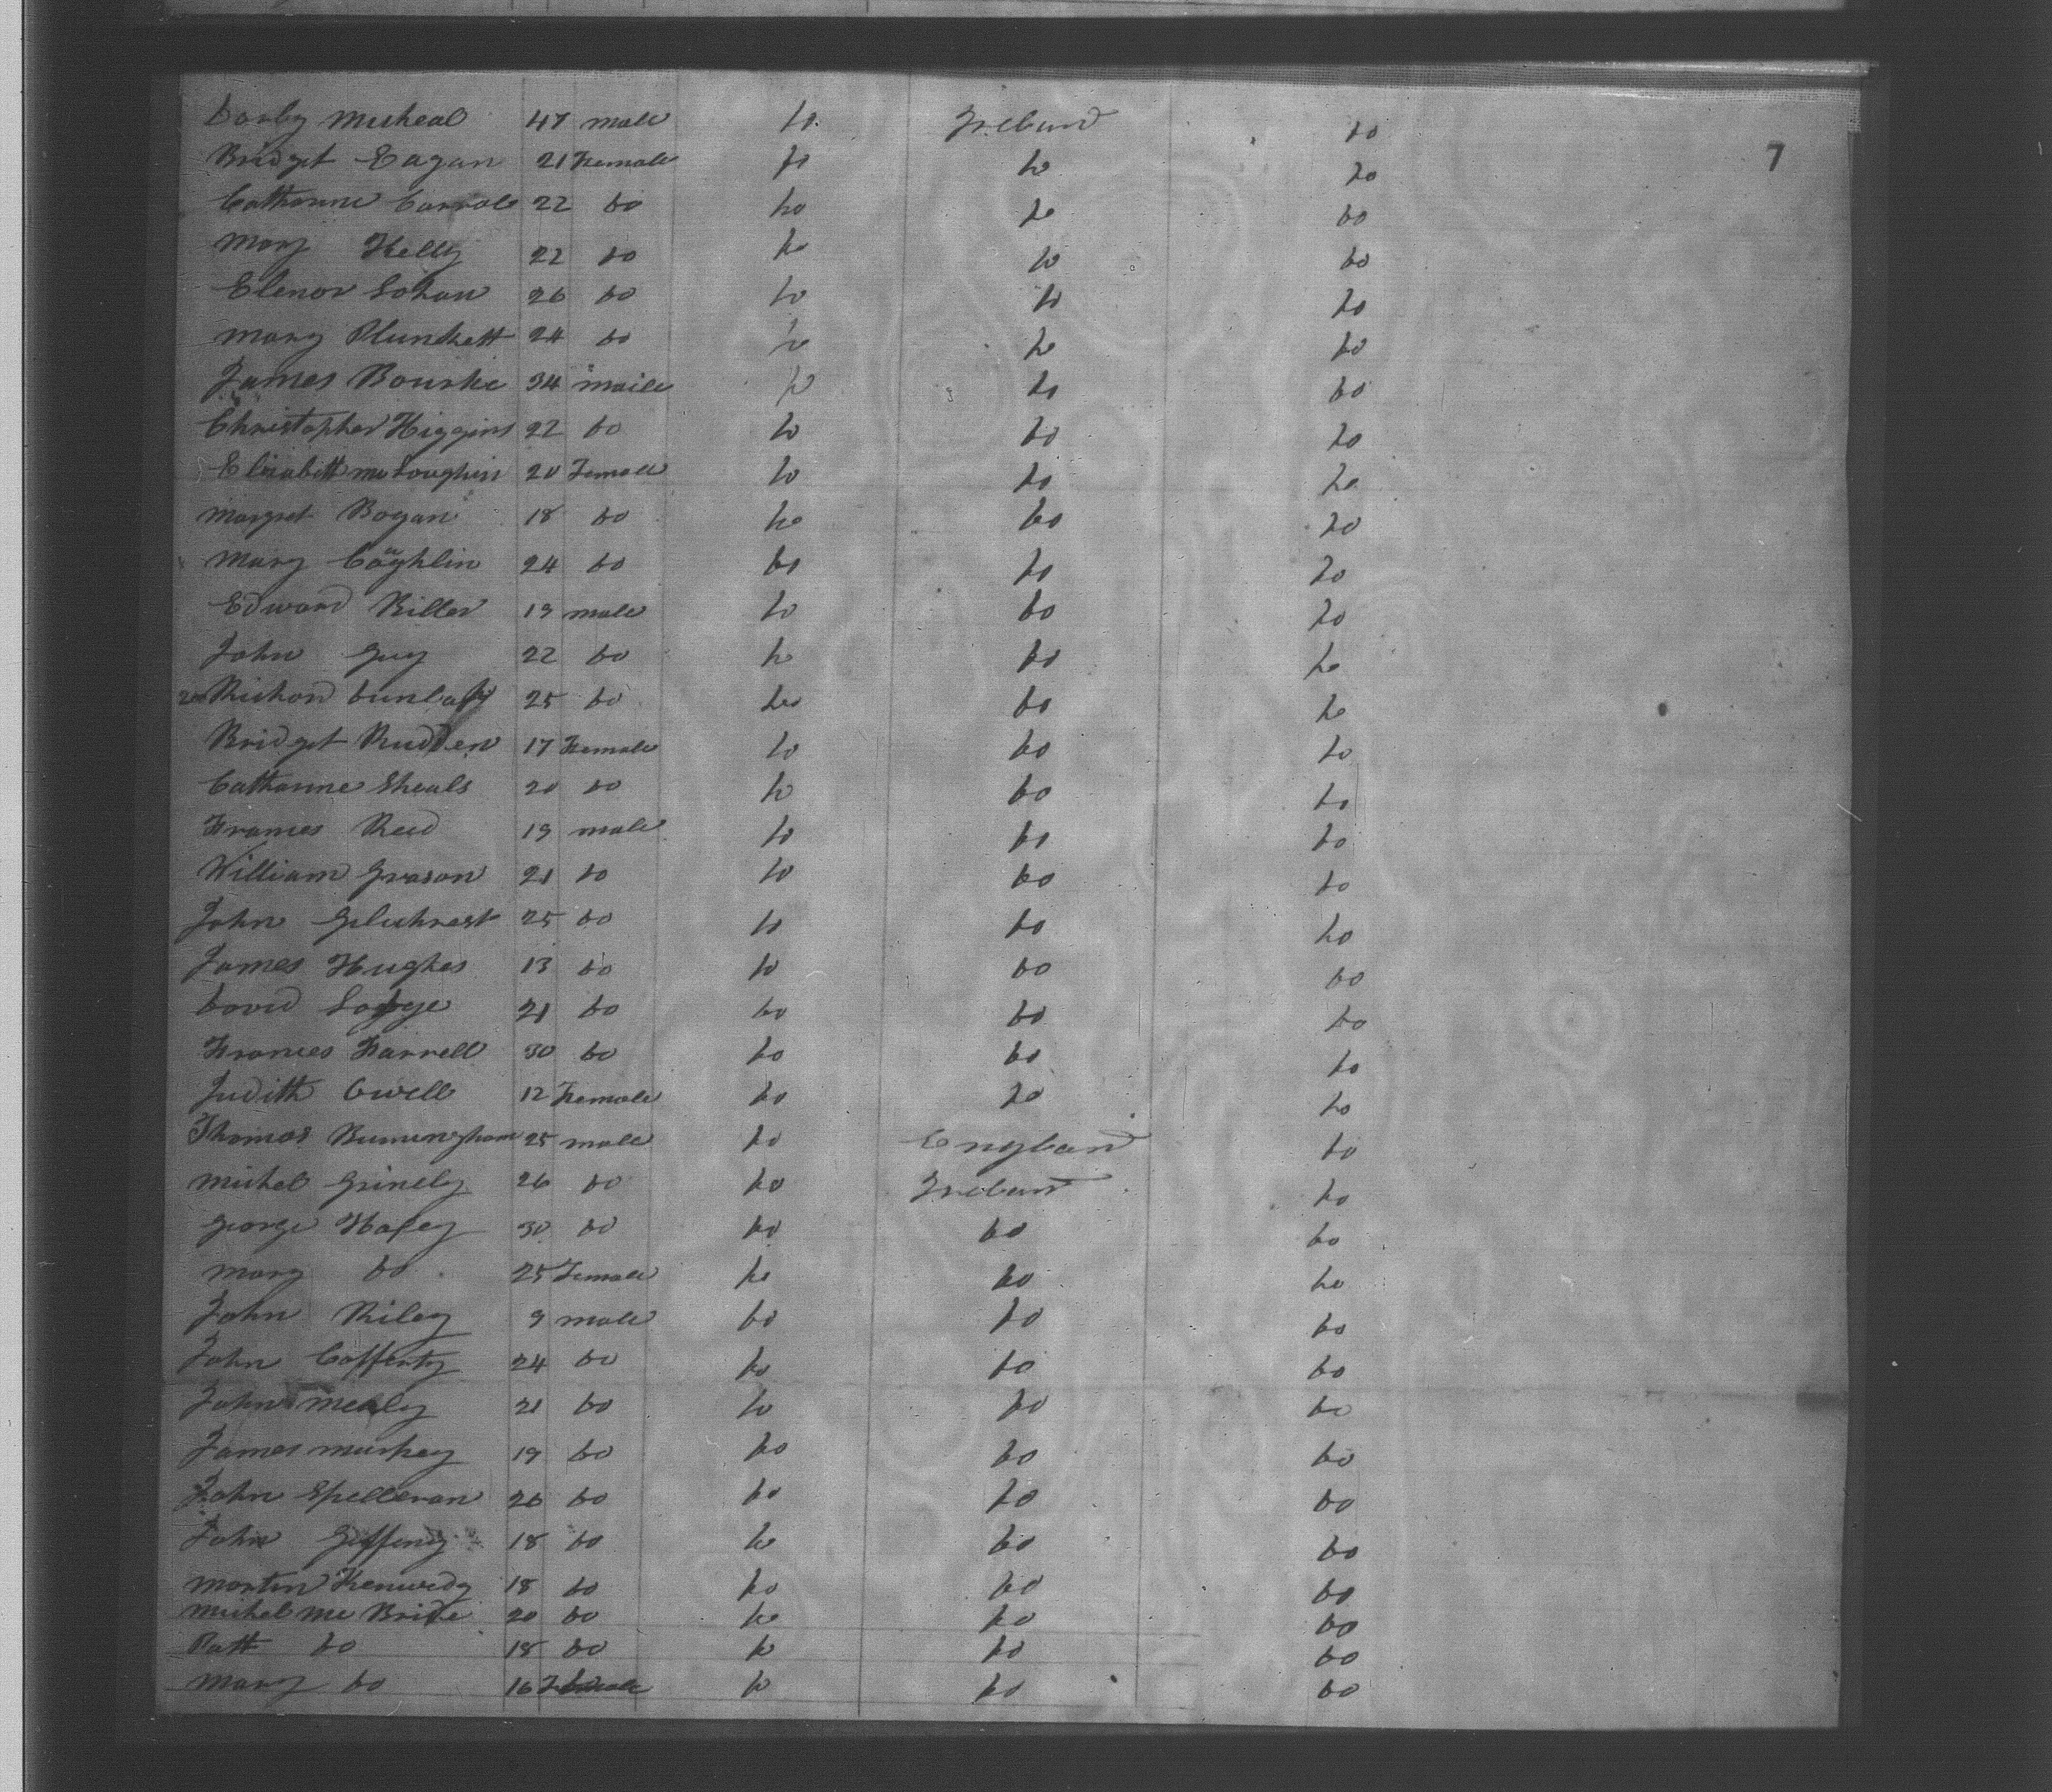 7
Darby Micheal 47 male do Ireland do
Bridget Eagan 21 Female do do do
Catharine Carrole 22 do do do do
Mary Kelly 22 do do do do
Elenor Lohan 26 do do do do
Mary Plunkett 24 do do do do
James Bourke 34 male do do do
Christopher Higgins 22 do do do do
Elizabeth McLoughlin 20 Female do do do
Margret Bogan 18 do do do do
Mary Coughlin 24 do do do do
Edward Biller 19 male do do do
John Guy 22 do do do do
Richard 25 do do do do
Bridget Rudden 17 Female do do do
Catharine Sheals 20 do do do do
Frances Reid 19 male do do do
William Grason 21 do do do do
John Gilchrest 25 do do do do
James Hughes 13 do do do do
David 21 do do do do
Frances Farrell 30 do do do do
Judith Cwell 12 Female do do do
Thomas 25 male do England do
Michel Grinely 26 do do Ireland do
George Hafey 30 do do do do
Mary do 25 Female do do do
John Riley 9 male do do do
John Cafferty 24 do do do do
John Mealy 21 do do do do
James 19 do do do do
John Spelleran 26 do do do do
John 18 do do do do
Martin 18 do do do do
Michel Mc Bride 20 do do do do
Patt do 18 do do do do
Mary do 16 Female do do do